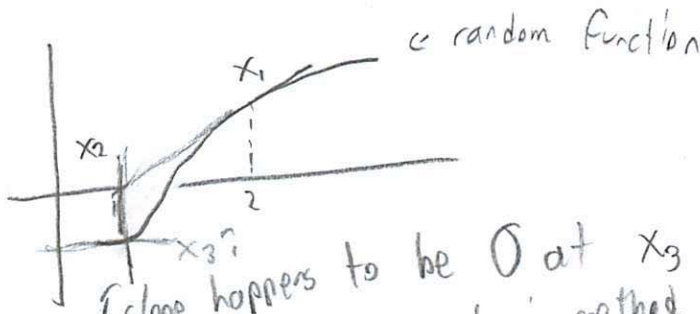 ← random function
x₁
x₂
2
x₃?
slope happens to be 0 at x₃
method